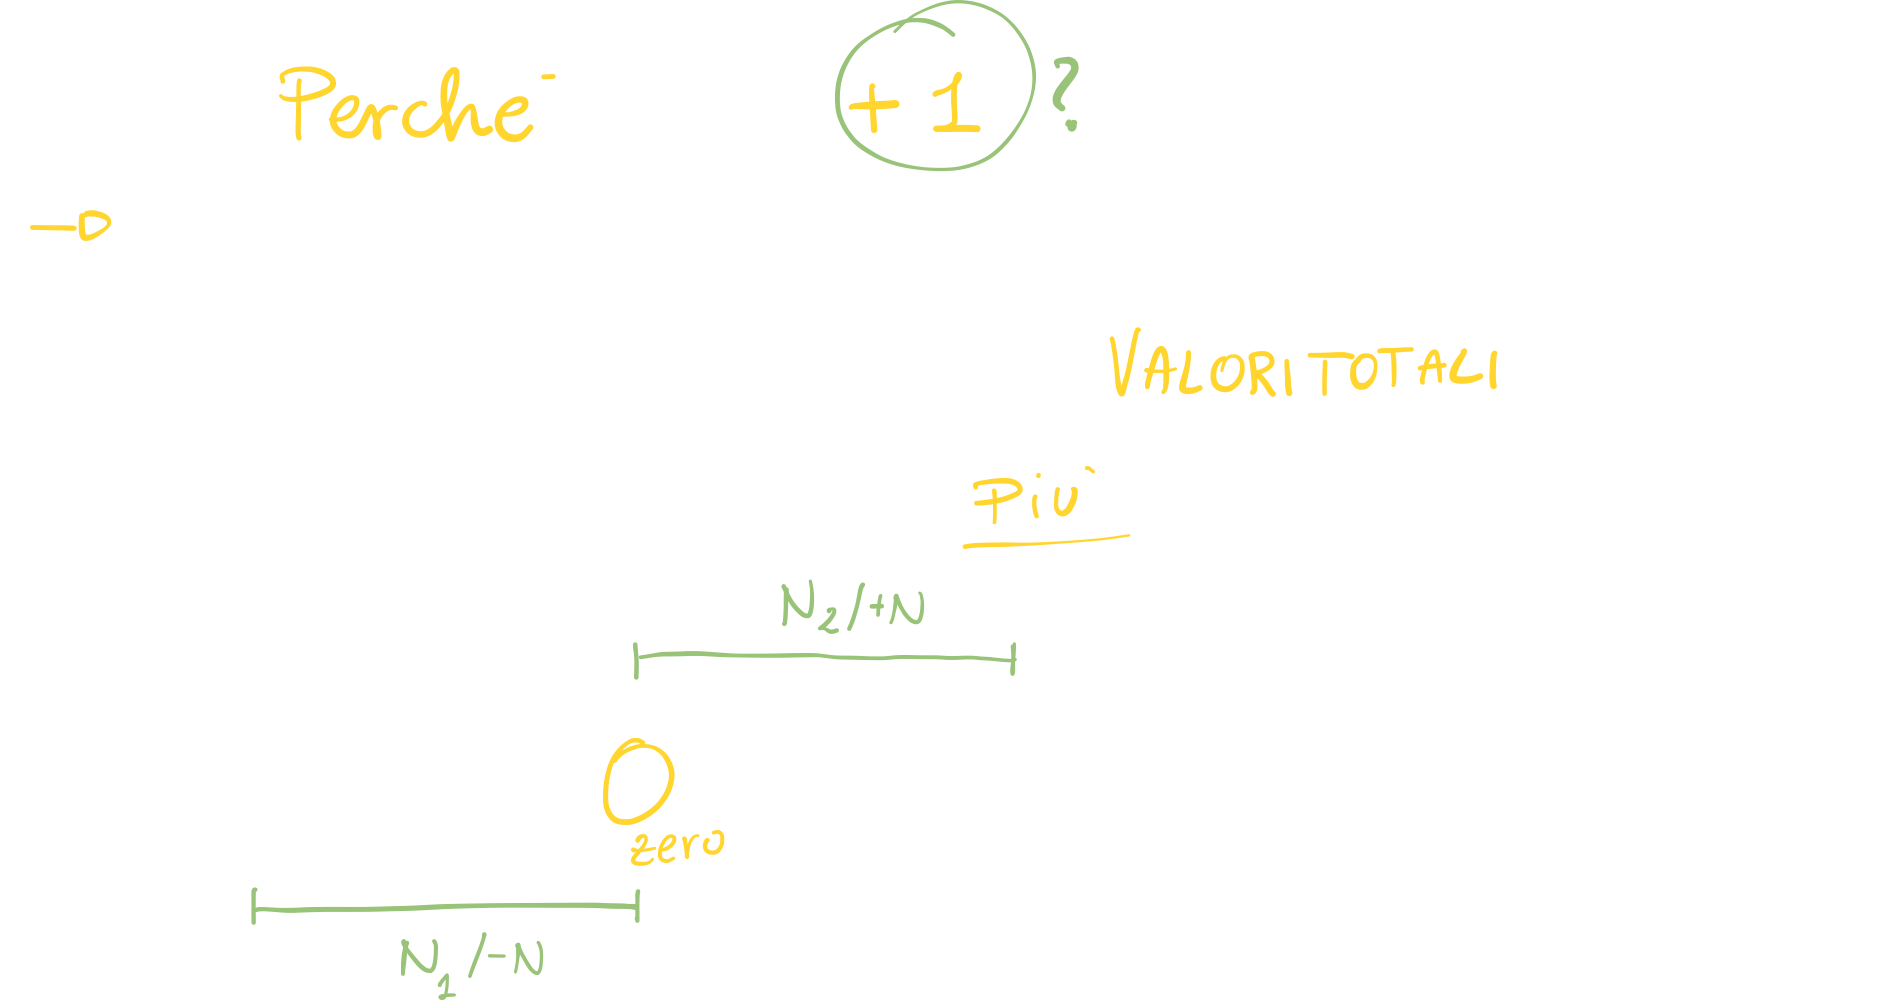 Perche- +1?
VALORI TOTALI
Più
N2/+N
0
zero
N1/-N